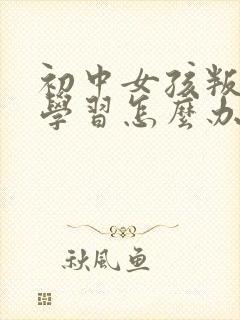 初中女孩叛
學習怎麼办
秋風魚